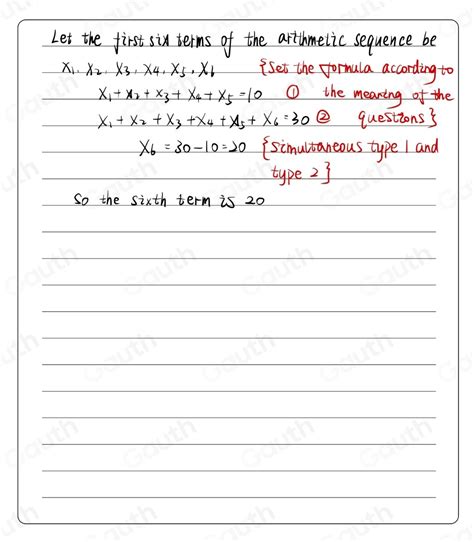 Let the first six terms of the arithmetic sequence be
X₁, X₂, X₃, X₄, X₅, X₆ {Set the formula according to
X₁+X₂+X₃+X₄+X₅=10 ① the meaning of the
X₁+X₂+X₃+X₄+X₅+X₆=30 ② questions}
X₆=30-10=20 {Simultaneous type 1 and
type 2}
So the sixth term is 20